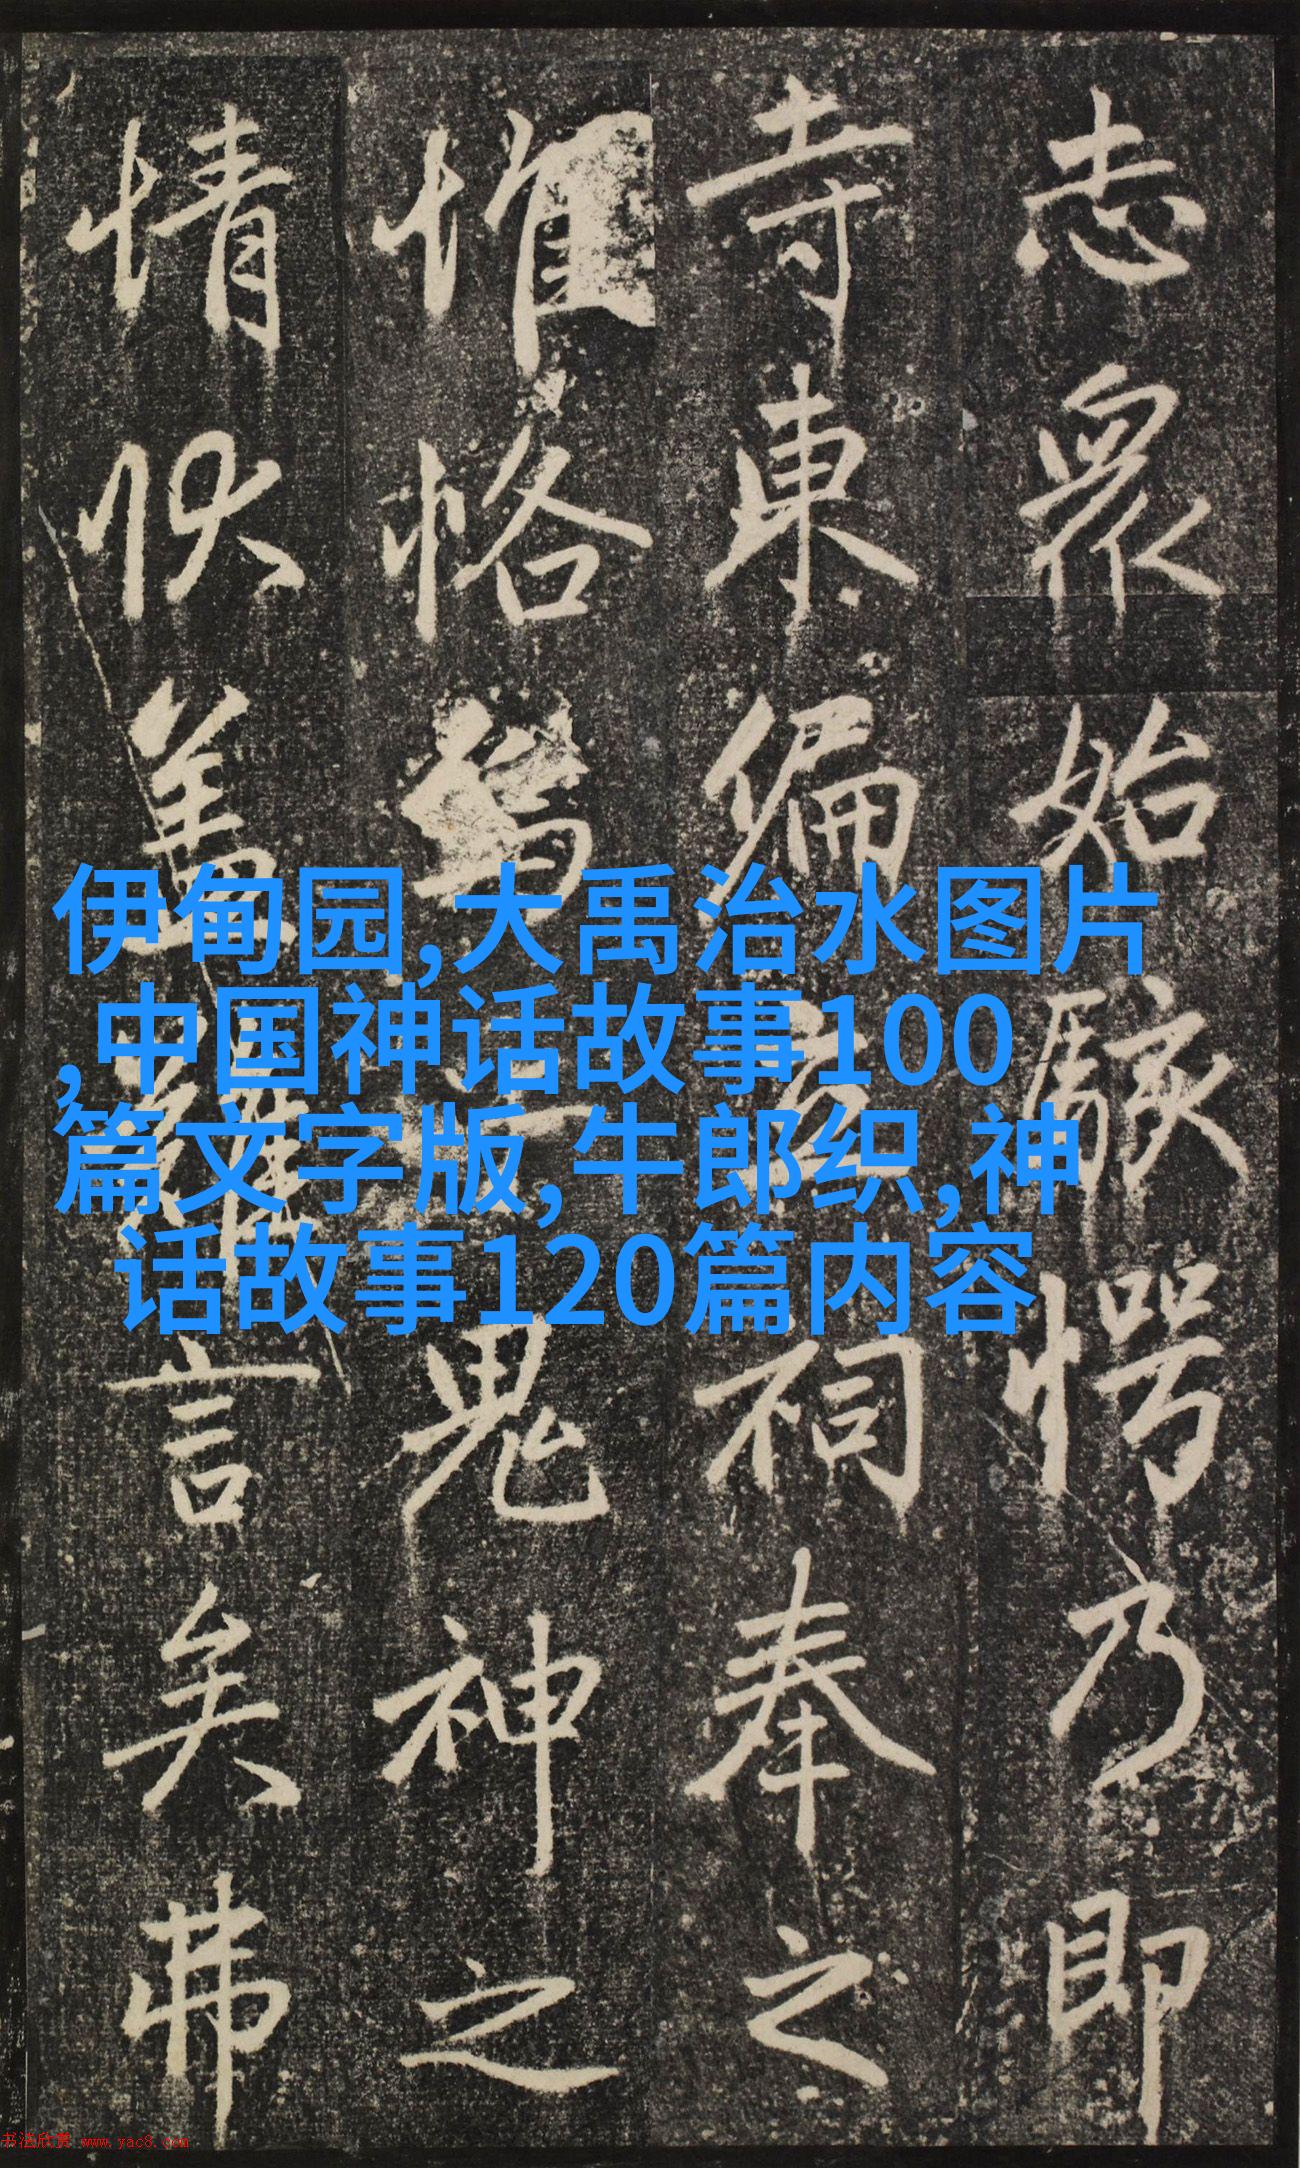 志眾始駭愕乃即
寺東偏立祠奉之
惟恪焉鬼神之
情狀蓋難言矣弗
伊甸园,大禹治水图片
,中国神话故事100
篇文字版,牛郎织,神
话故事120篇内容
书法欣赏 www.yac8.com